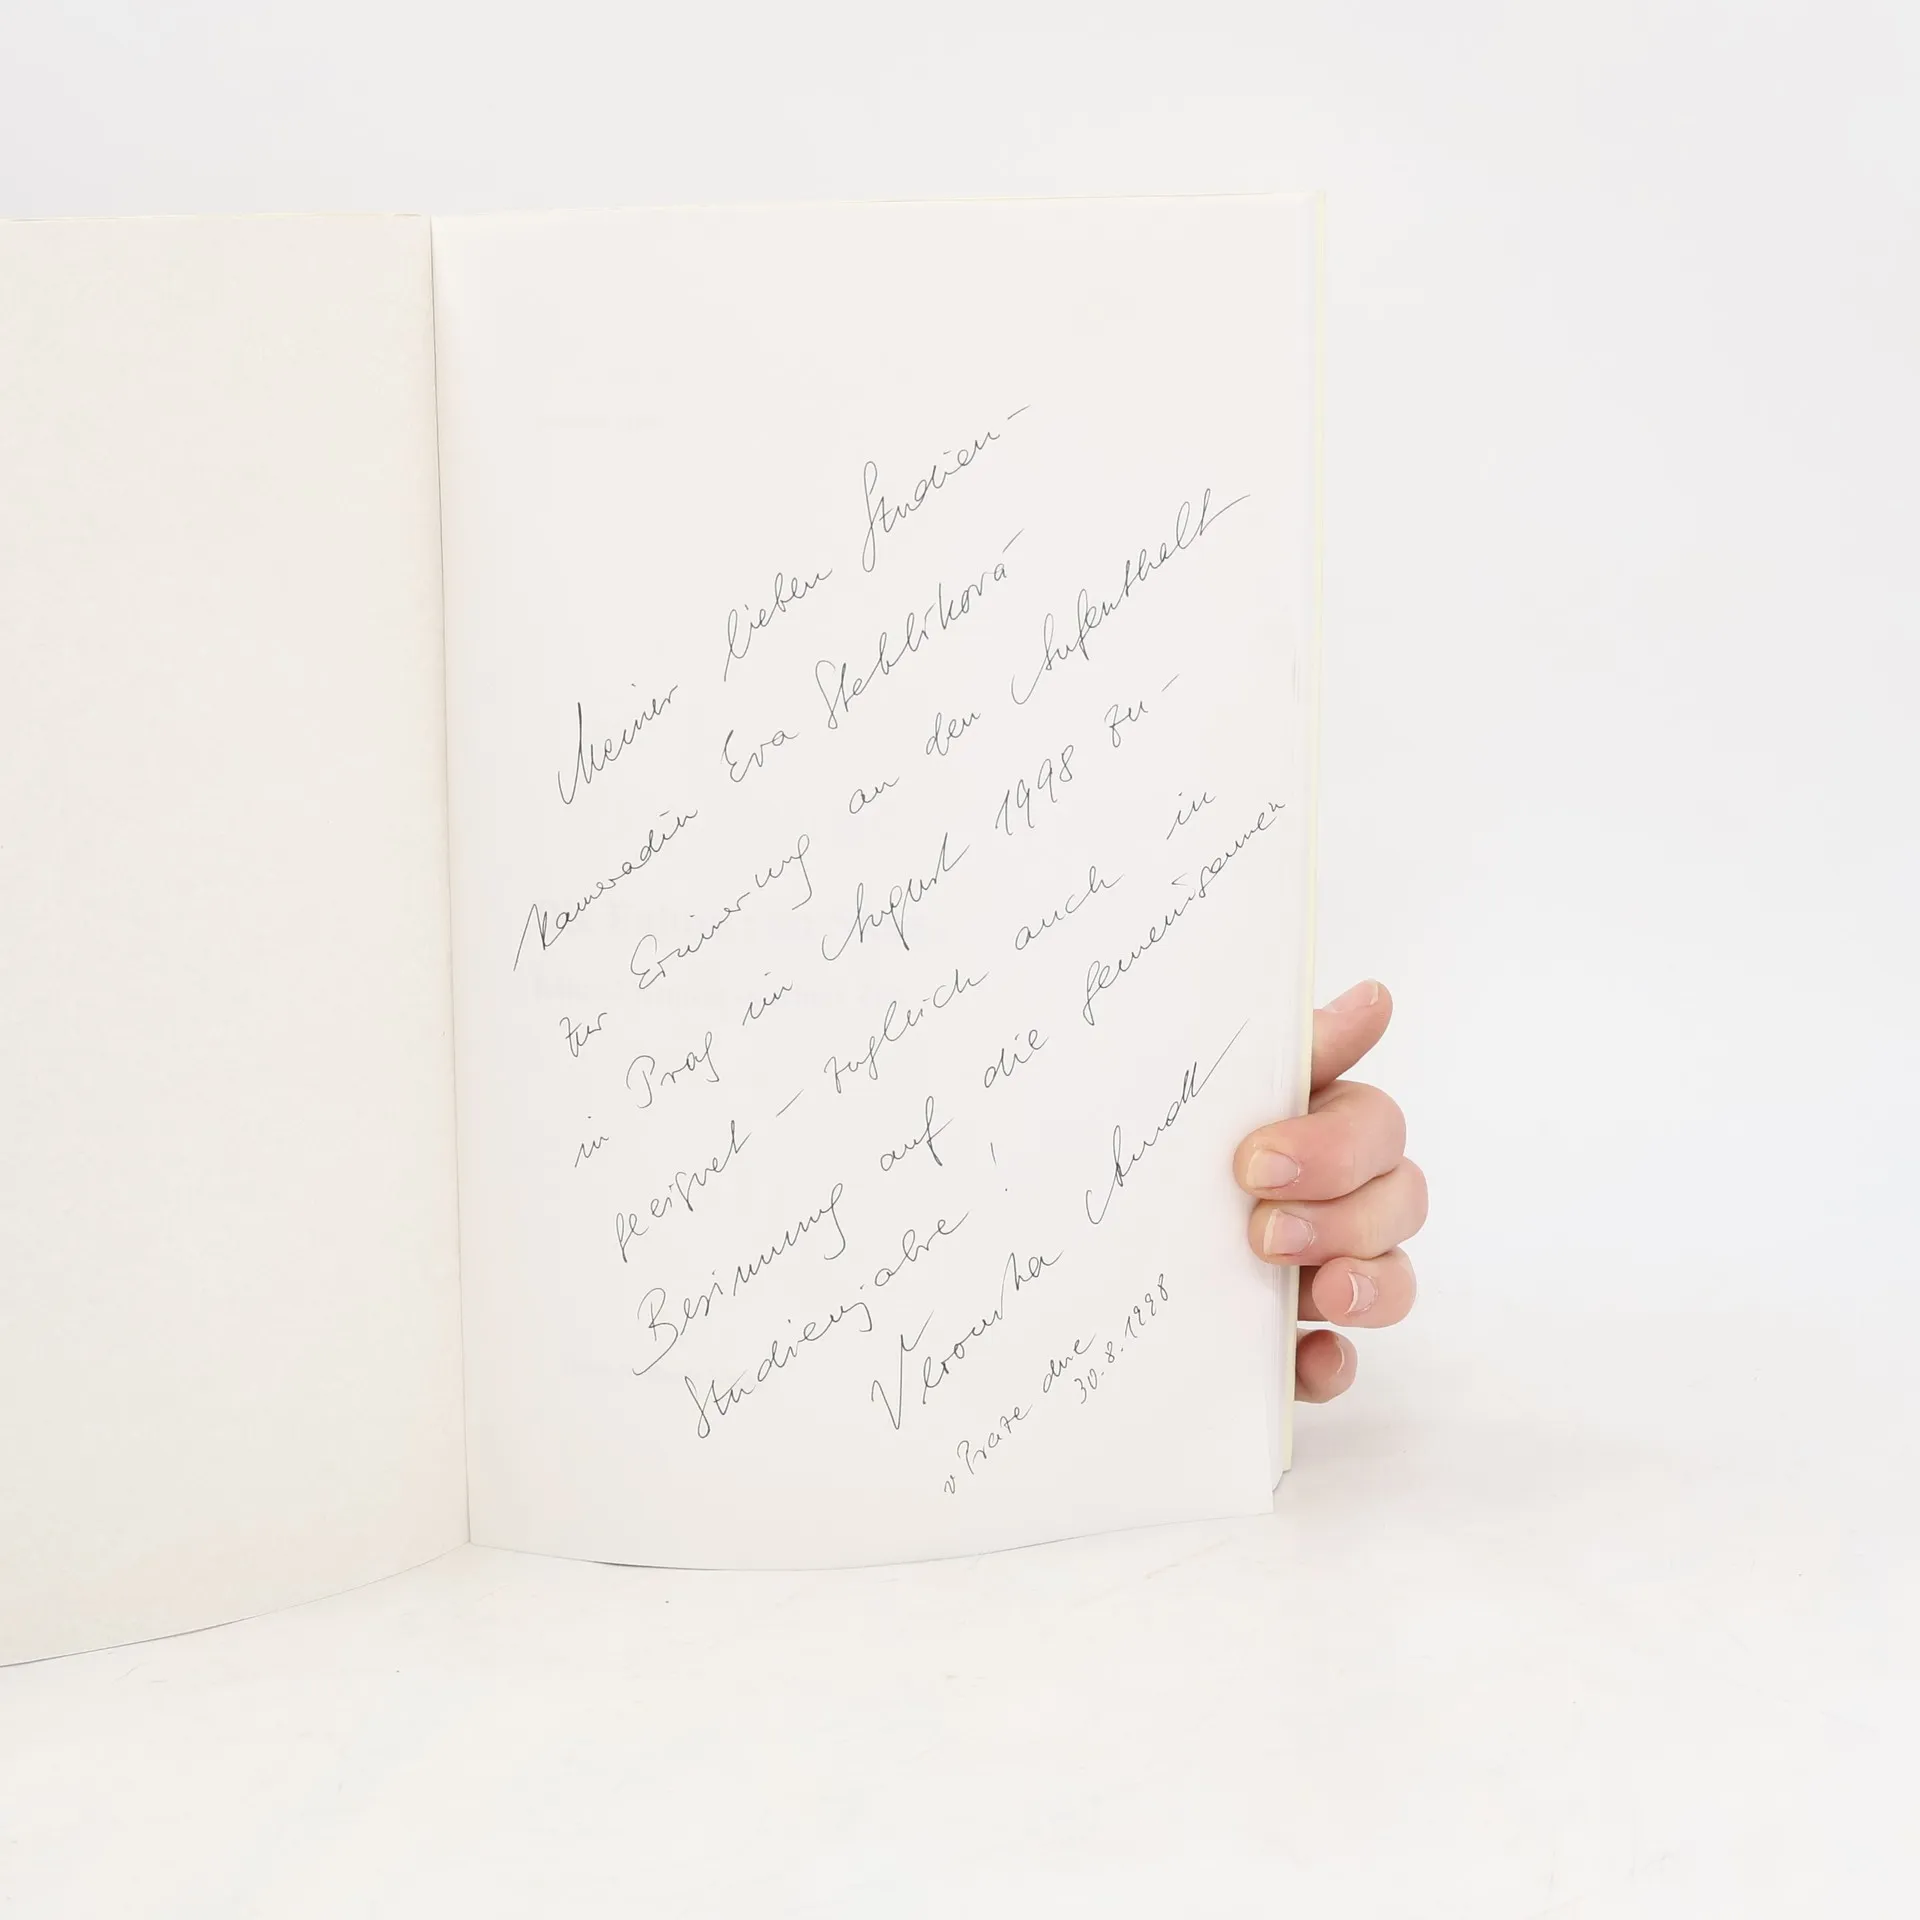 Meiner lieben Studien-
kameradin Eva Stehlíková
zur Erinnerung an den Aufenthalt
in Prag im August 1998 zu-
geeignet – zugleich auch in
Besinnung auf die gemeinsamen
Studienjahre!
Verounka Arndt
v Praze dne
30.8.1998